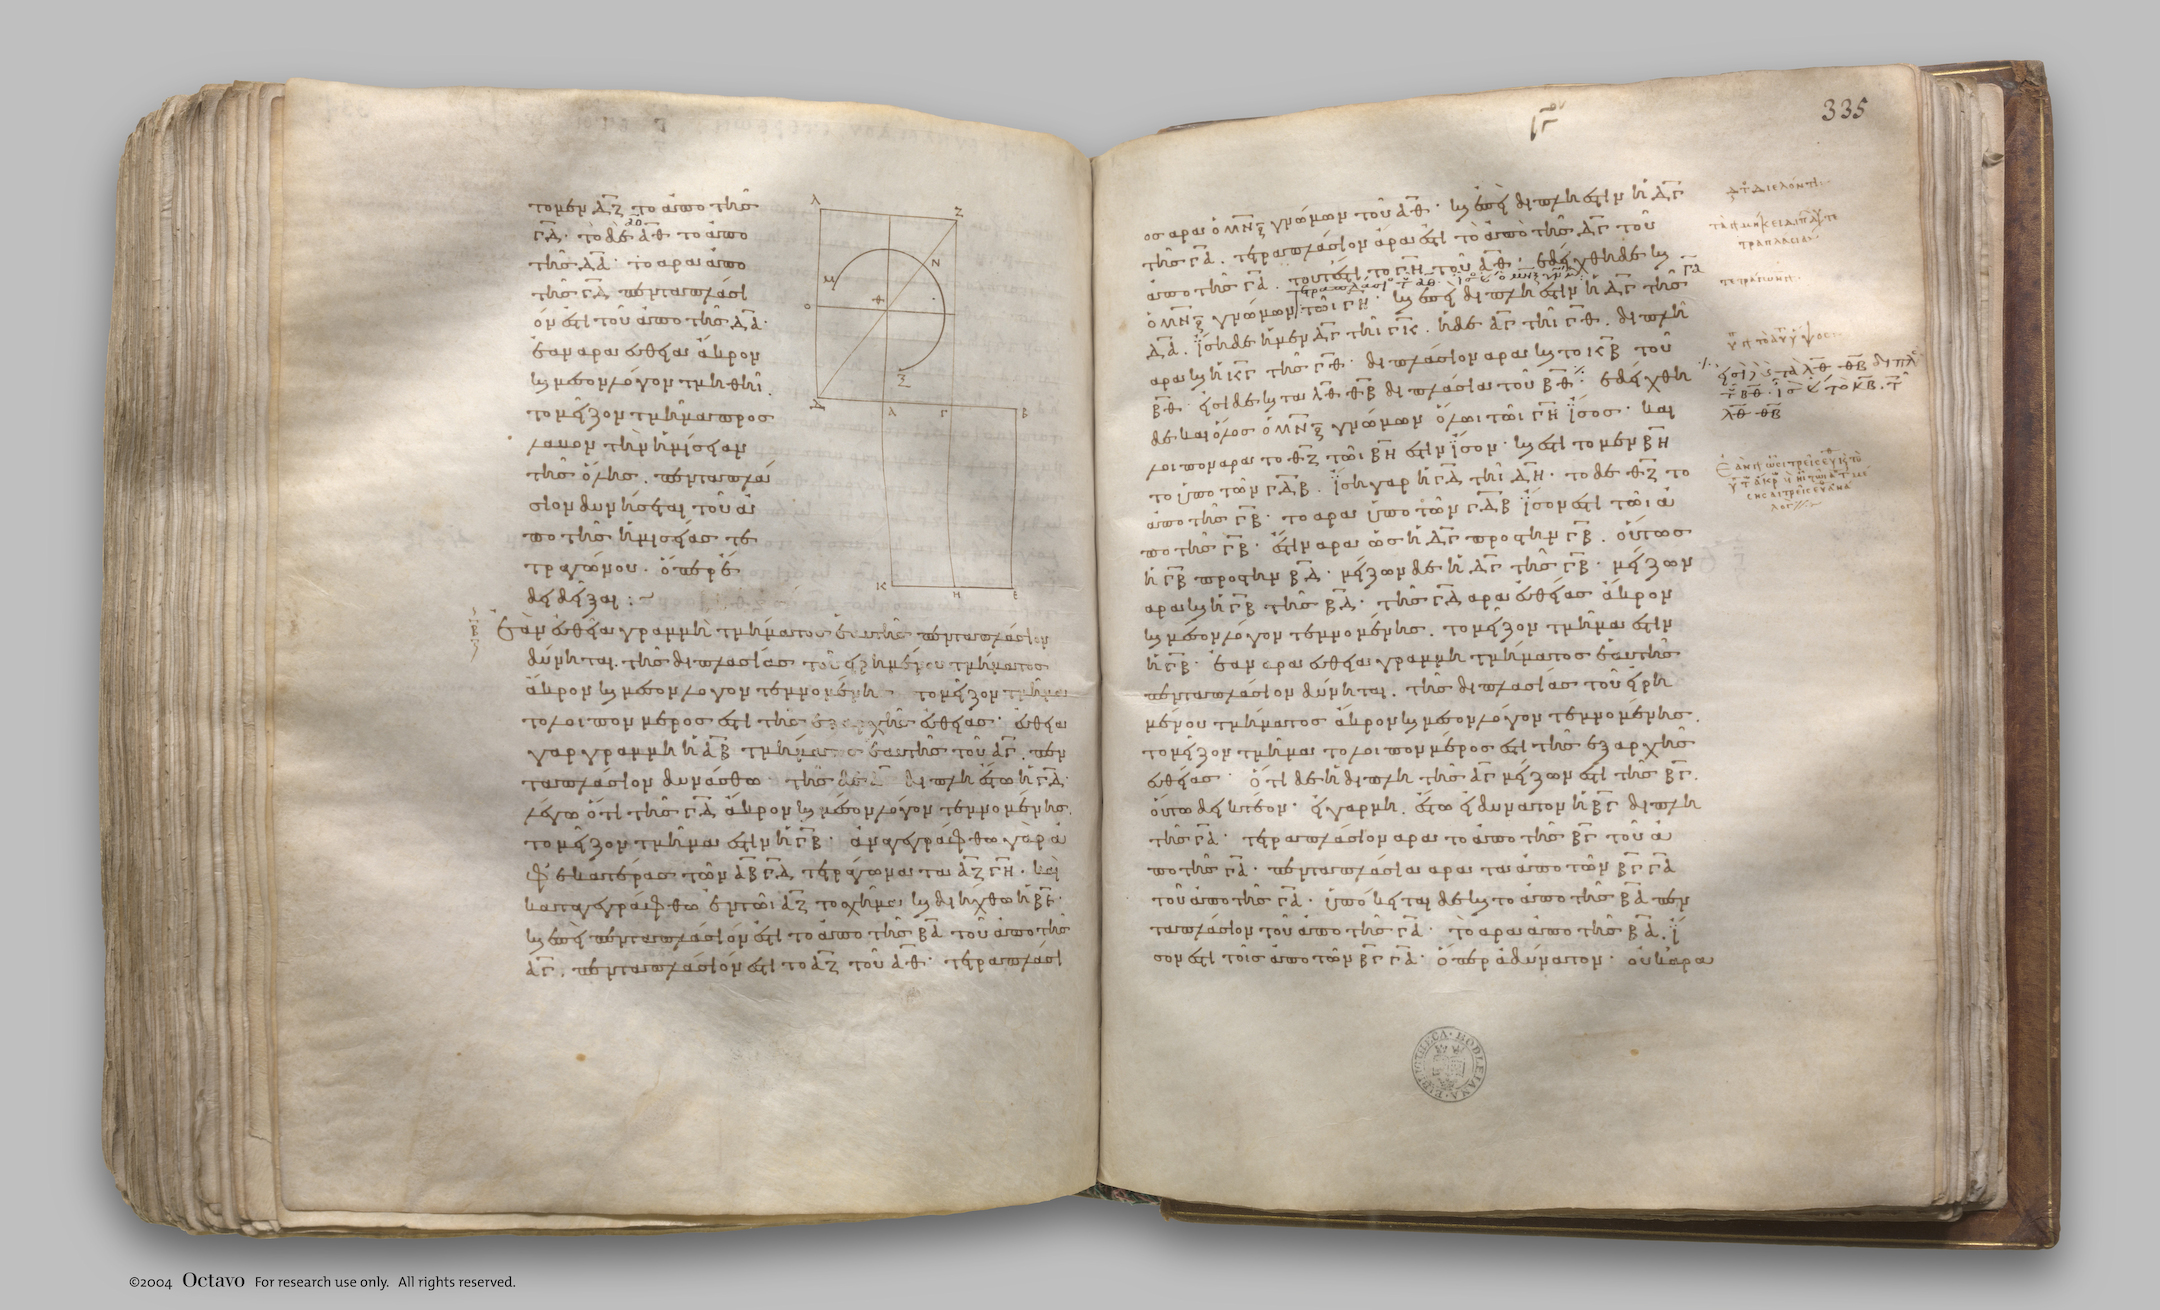 τὸ μὲν ΔΖ τὸ ἀπὸ τῆς
ΓΔ· τὸ δὲ ΔΘ τὸ ἀπὸ
τῆς ΔΑ· τὸ ἄρα ἀπὸ
τῆς ΓΔ πενταπλάσι
όν ἐστι τοῦ ἀπὸ τῆς ΔΑ·
ἐὰν ἄρα εὐθεῖα ἄκρον
ϗ μέσον λόγον τμηθῆι.
τὸ μεῖζον τμῆμα προσ
λαβὸν τὴν ἡμίσειαν
τῆς ὅλης. πενταπλά
σιον δυνήσεται τοῦ ἀ
πὸ τῆς ἡμισείας τε
τραγώνου· ὅπερ ἔ
δει δεῖξαι :~
Λ Ζ
Μ Ν
Ο
Ξ
Δ Α Γ Β
Κ Η Ε
Β
Ἐὰν εὐθεῖα γραμμὴ τμήματος ἑαυτῆς πενταπλάσιον
δύνηται. τῆς διπλασίας τοῦ εἰρημένου τμήματος
ἄκρον ϗ μέσον λόγον τεμνομένης τὸ μεῖζον τμῆμα
τὸ λοιπὸν μέρος ἐστὶ τῆς ἐξ ἀρχῆς εὐθείας· εὐθεῖα
γὰρ γραμμὴ ἡ ΑΒ τμήματος ἑαυτῆς τοῦ ΑΓ. πεν
ταπλάσιον δυνάσθω· τῆς δὲ ΑΓ διπλῆ ἔστω ἡ ΓΔ·
λέγω ὅτι τῆς ΓΔ ἄκρον ϗ μέσον λόγον τεμνομένης.
τὸ μεῖζον τμῆμά ἐστιν ἡ ΓΒ· ἀναγεγράφθω γὰρ ἀ
φ' ἑκατέρας τῶν ΑΒ ΓΔ τετράγωνα τὰ ΑΖ ΓΗ· καὶ
καταγεγράφθω ἐν τῶι ΑΖ τὸ σχῆμα ϗ διήχθω ἡ ΒΕ·
ϗ ἐπεὶ πενταπλάσιόν ἐστι τὸ ἀπὸ τῆς ΒΑ τοῦ ἀπὸ τῆς
ΑΓ. πενταπλάσιόν ἐστι τὸ ΑΖ τοῦ ΑΘ· τετραπλάσι
335
ος ἄρα ὁ ΜΝΞ γνώμων τοῦ ΑΘ· ϗ ἐπεὶ διπλῆ ἐστιν ἡ ΔΓ
τῆς ΓΑ. τετραπλάσιον ἄρα ἐστὶ τὸ ἀπὸ τῆς ΔΓ τοῦ
ἀπὸ τῆς ΓΑ. τουτέστι τὸ ΓΗ τοῦ ΑΘ· ἐδείχθη δὲ ϗ
ὁ ΜΝΞ γνώμων τῶι ΓΗ· ϗ ἐπεὶ διπλῆ ἐστιν ἡ ΔΓ τῆς ΓΑ
ΔΑ. ἴση δὲ ἡ μὲν ΔΓ τῆι ΓΚ. ἡ δὲ ΑΓ τῆι ΓΘ. διπλῆ
ἄρα ϗ ἡ ΚΓ τῆς ΓΘ· διπλάσιον ἄρα ϗ τὸ ΚΒ τοῦ
ΒΘ· εἰσὶ δὲ ϗ τὰ ΛΘ ΘΒ διπλάσια τοῦ ΒΘ· ἐδείχθη
δὲ καὶ ὅλος ὁ ΜΝΞ γνώμων ὅλωι τῶι ΓΗ ἴσος· καὶ
λοιπὸν ἄρα τὸ ΘΖ τῶι ΒΗ ἐστὶν ἴσον· ϗ ἐστὶ τὸ μὲν ΒΗ
τὸ ὑπὸ τῶν ΓΔΒ. ἴση γὰρ ἡ ΓΔ τῆι ΔΗ· τὸ δὲ ΘΖ τὸ
ἀπὸ τῆς ΓΒ· τὸ ἄρα ὑπὸ τῶν ΓΔΒ ἴσον ἐστὶ τῶι ἀ
πὸ τῆς ΓΒ· ἔστιν ἄρα ὡς ἡ ΔΓ πρὸς τὴν ΓΒ. οὕτως
ἡ ΓΒ πρὸς τὴν ΒΔ· μείζων δὲ ἡ ΔΓ τῆς ΓΒ· μείζων
ἄρα ϗ ἡ ΓΒ τῆς ΒΔ· τῆς ΓΔ ἄρα εὐθείας ἄκρον
ϗ μέσον λόγον τεμνομένης. τὸ μεῖζον τμῆμά ἐστιν
ἡ ΓΒ· ἐὰν ἄρα εὐθεῖα γραμμὴ τμήματος ἑαυτῆς
πενταπλάσιον δύνηται. τῆς διπλασίας τοῦ εἰρη
μένου τμήματος ἄκρον ϗ μέσον λόγον τεμνομένης.
τὸ μεῖζον τμῆμα τὸ λοιπὸν μέρος ἐστὶ τῆς ἐξ ἀρχῆς
εὐθείας· ὅτι δὲ ἡ διπλῆ τῆς ΑΓ μείζων ἐστὶ τῆς ΒΓ.
οὕτω δεικτέον· εἰ γὰρ μή. ἔστω εἰ δυνατὸν ἡ ΒΓ διπλῆ
τῆς ΓΑ· τετραπλάσιον ἄρα τὸ ἀπὸ τῆς ΒΓ τοῦ ἀ
πὸ τῆς ΓΑ· πενταπλάσια ἄρα τὰ ἀπὸ τῶν ΒΓ ΓΑ
τοῦ ἀπὸ τῆς ΓΑ. ὑπόκειται δὲ ϗ τὸ ἀπὸ τῆς ΒΑ πεν
ταπλάσιον τοῦ ἀπὸ τῆς ΓΑ· τὸ ἄρα ἀπὸ τῆς ΒΑ. ἴ
σον ἐστὶ τοῖς ἀπὸ τῶν ΒΓ ΓΑ· ὅπερ ἀδύνατον· οὐκ ἄρα
BIBLIOTHECA BODLEIANA
©2004 Octavo For research use only. All rights reserved.